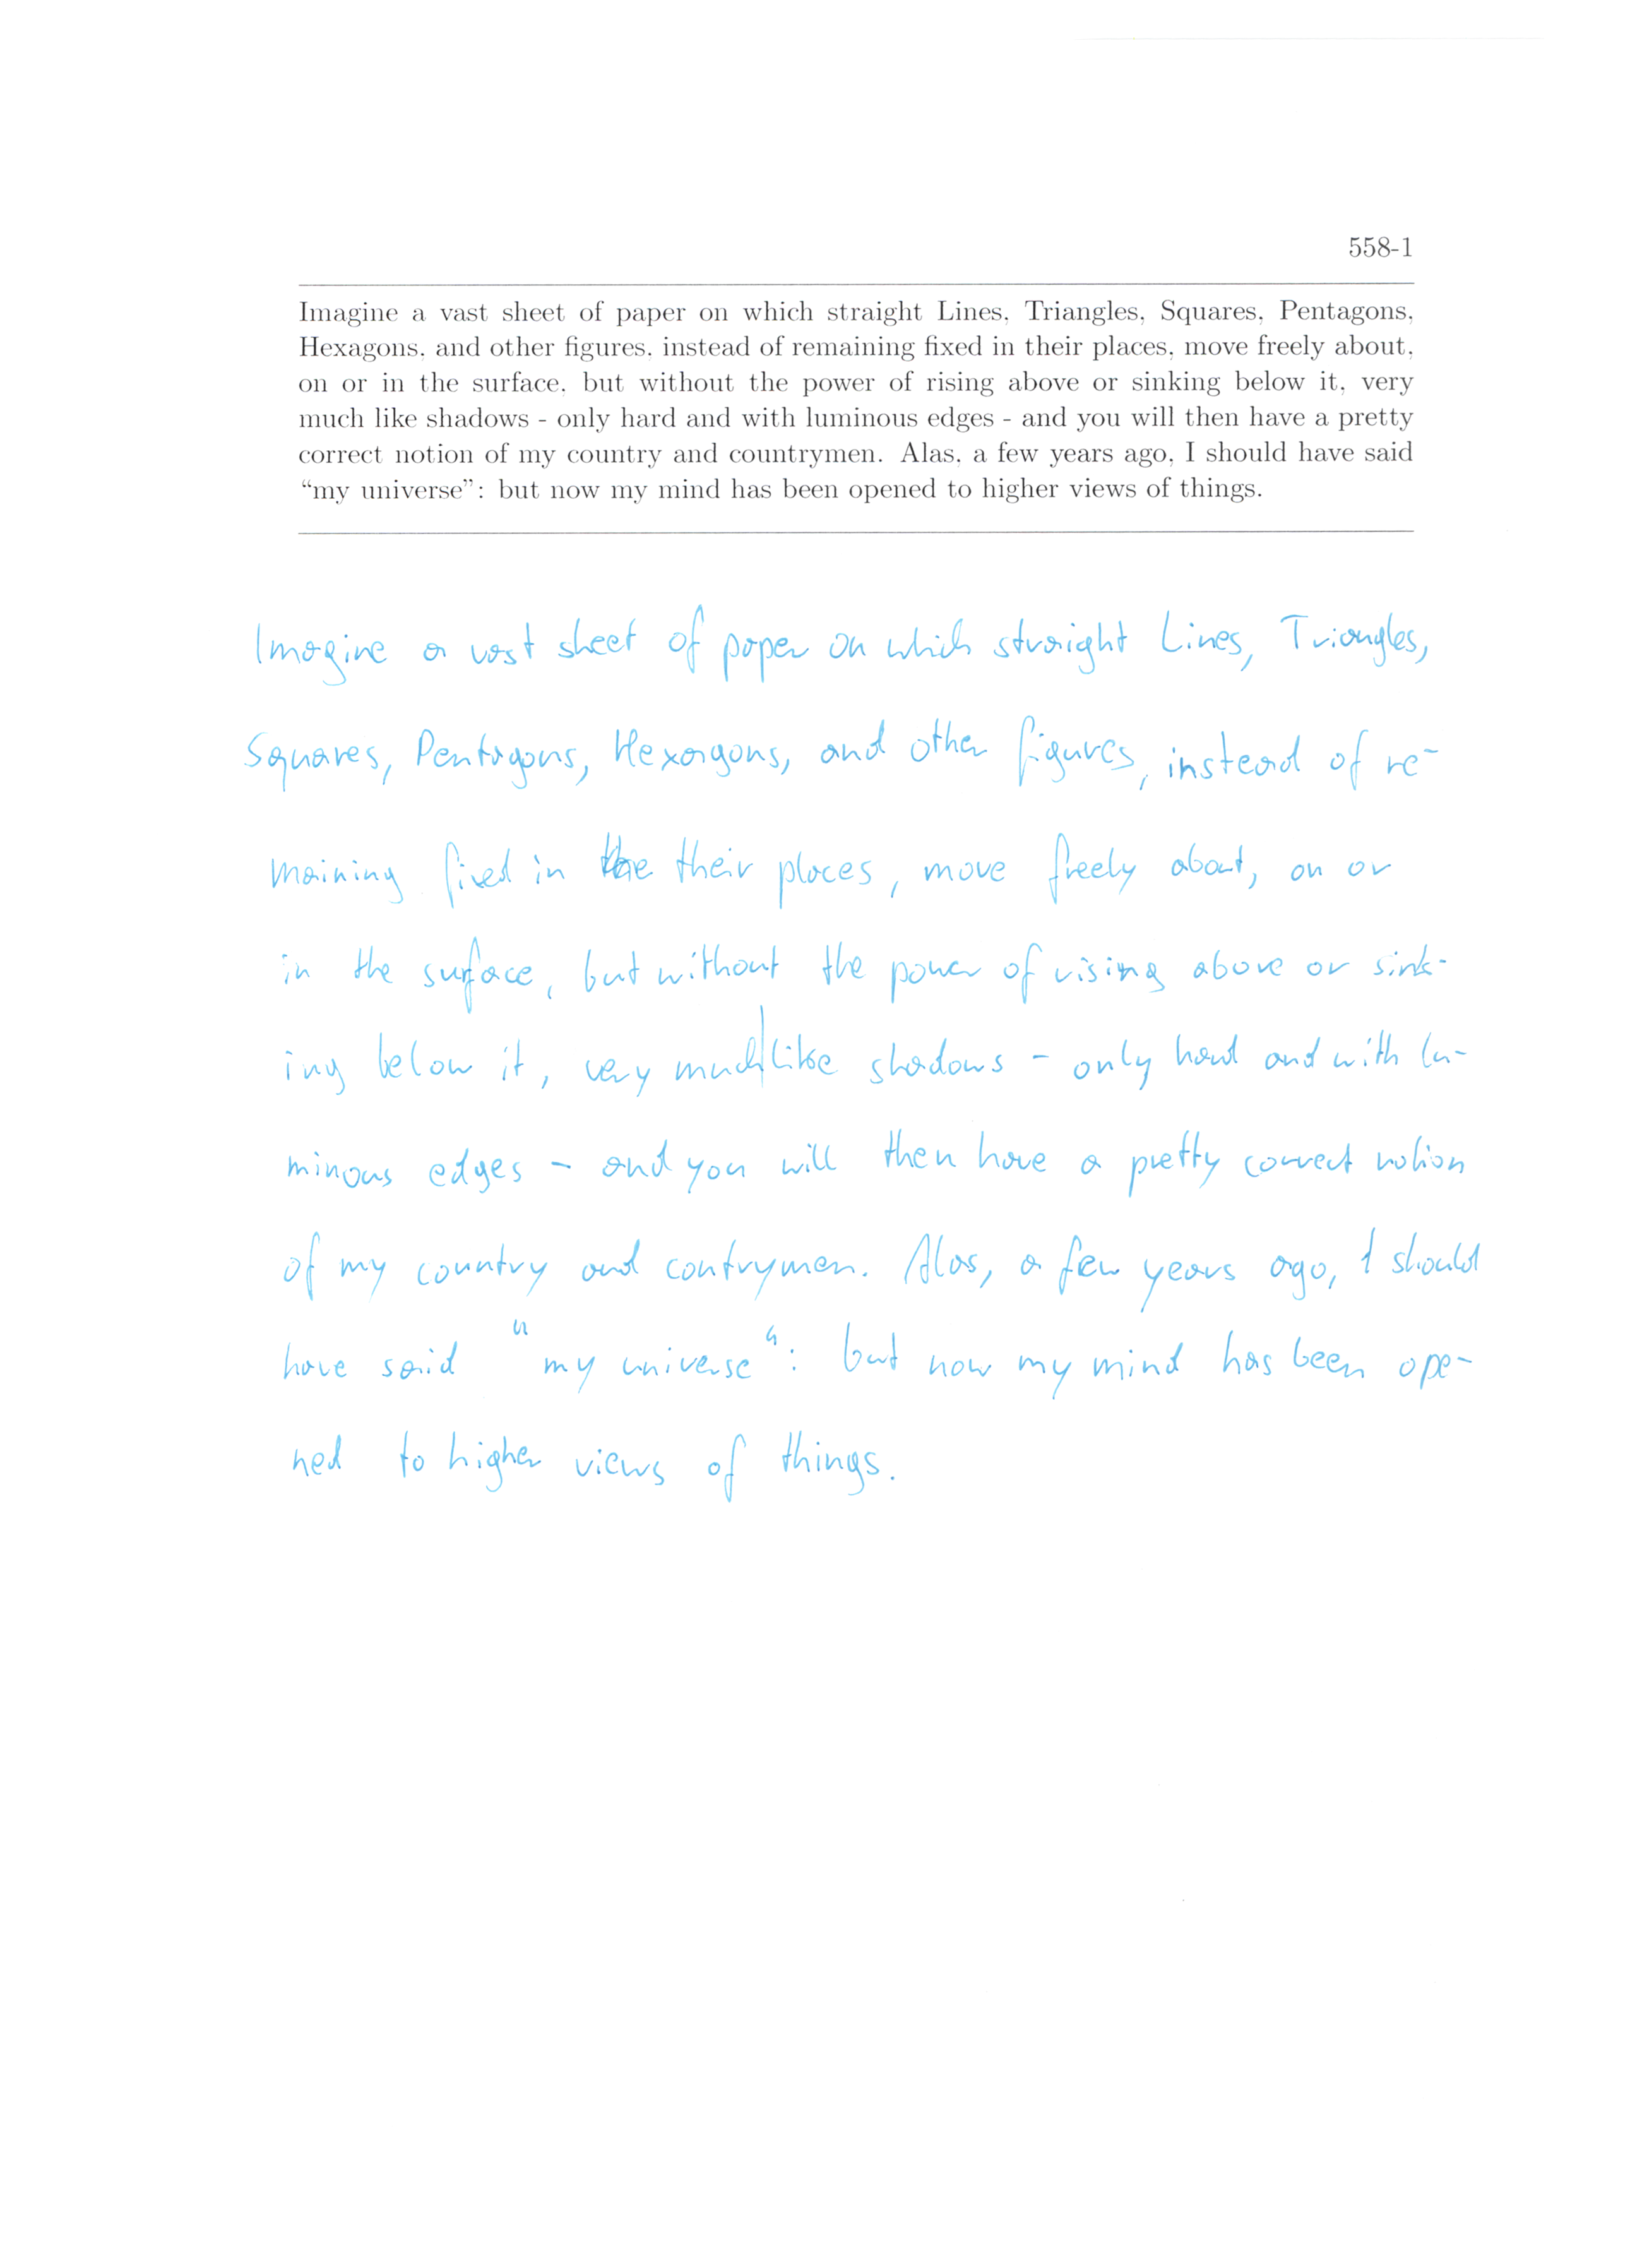 558-1
Imagine a vast sheet of paper on which straight Lines, Triangles, Squares, Pentagons,
Hexagons, and other figures, instead of remaining fixed in their places, move freely about,
on or in the surface, but without the power of rising above or sinking below it, very
much like shadows - only hard and with luminous edges - and you will then have a pretty
correct notion of my country and countrymen. Alas, a few years ago, I should have said
“my universe”: but now my mind has been opened to higher views of things.
Imagine a vast sheet of paper on which straight Lines, Triangles,
Squares, Pentagons, Hexagons, and other figures, instead of re-
maining fixed in the their places, move freely about, on or
in the surface, but without the power of rising above or sink-
ing below it, very much like shadows - only hard and with lu-
minous edges - and you will then have a pretty correct notion
of my country and contrymen. Alas, a few years ago, I should
have said "my universe": but now my mind has been ope-
ned to higher views of things.